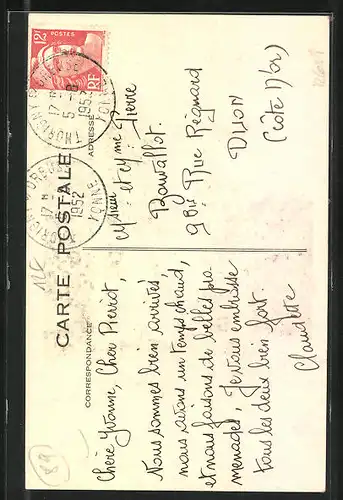 CARTE POSTALE
CORRESPONDANCE
ADRESSE
Chère Yvonne, Cher Pierrot,
Nous sommes bien arrivés,
nous avons un temps chaud,
et nous faisons de belles pro
menades. Je vous embrasse
tous les deux bien fort.
Claudette
POSTES
12F
RF
17 H
5 - 8
1952
YONNE
17 H
1952
YONNE
Msieur et Mme Pierre
Bouvallot.
9 Bis Rue Régnard
DIJON
(Côte d'Or)
89